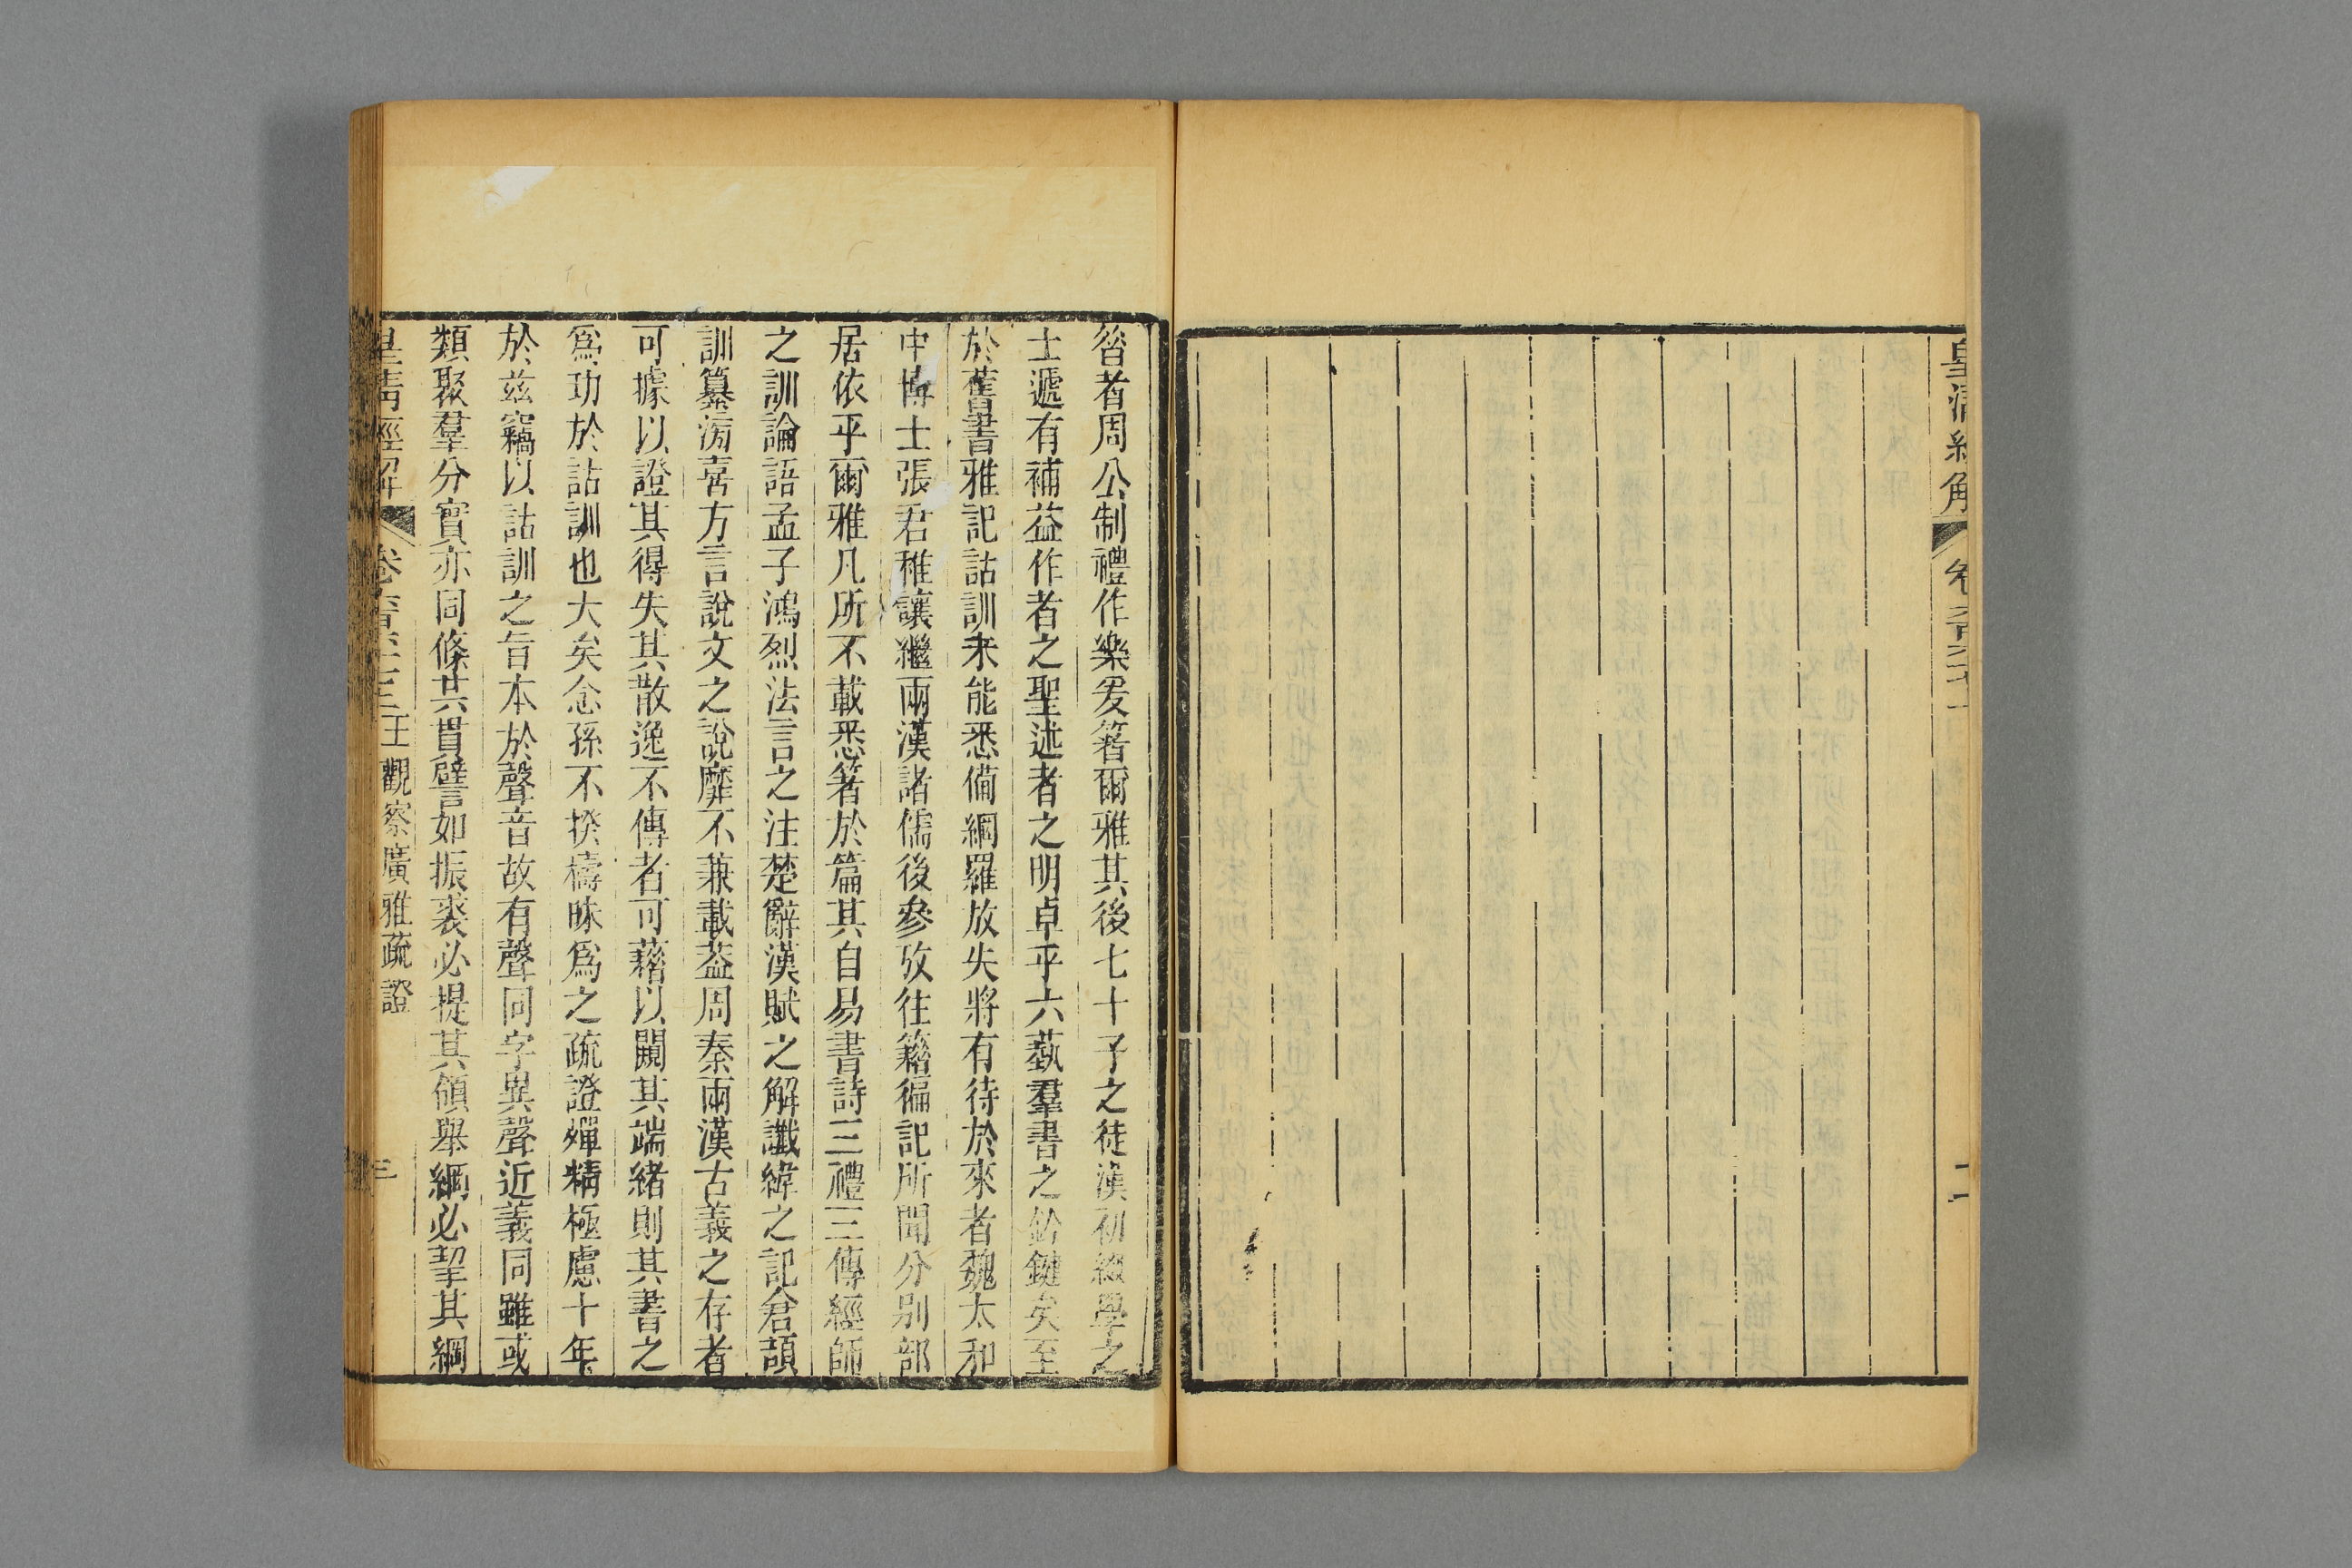 皇清經解
二
昝者周公制禮作樂爰箸爾雅其後七十子之徒漢初綴學之
士遞有補益作者之聖述者之明卓乎六蓺羣書之鈐鍵矣至
於舊書雅記詁訓未能悉備網羅放失將有待於來者魏太和
中博士張君稚讓繼兩漢諸儒後參攷往籍徧記所聞分別部
居依乎爾雅凡所不載悉箸於篇其自易書詩三禮三傳經師
之訓論語孟子鴻烈法言之注楚辭漢賦之解讖緯之記倉頡
訓纂滂喜方言說文之說靡不兼載葢周秦兩漢古義之存者
可據以證其得失其散逸不傳者可藉以闚其端緒則其書之
爲功於詁訓也大矣念孫不揆檮昧爲之疏證殫精極慮十年
於茲竊以詁訓之旨本於聲音故有聲同字異聲近義同雖或
類聚羣分實亦同條共貫譬如振裘必提其領舉網必挈其綱
皇清經解 王觀察廣雅疏證 三